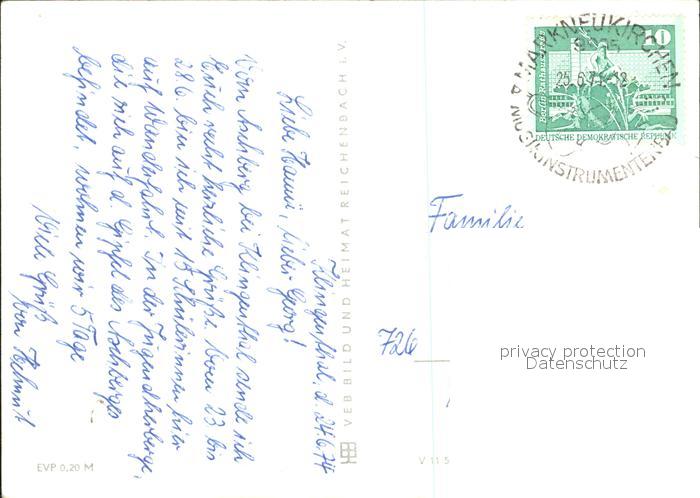 Klingenthal, d. 24.6.74
Liebe Hanni, lieber Georg!
Vom Aschberg bei Klingenthal sende ich
Euch recht herzliche Grüße. Vom 23 bis
28.6. bin ich mit 13 Schülerinnen hier
auf Wanderfahrt. In der Jugendherberge,
die sich auf d. Gipfel des Aschberges
befindet, wohnen wir 5 Tage
Viele Grüße
von Helmut
EVP 0,20 M
VEB BILD UND HEIMAT REICHENBACH i. V.
V 11 5
MARKNEUKIRCHEN
MUSIKINSTRUMENTEN
Berlin Rathausstraße
10
DEUTSCHE DEMOKRATISCHE REPUBLIK
Familie
726
privacy protection
Datenschutz